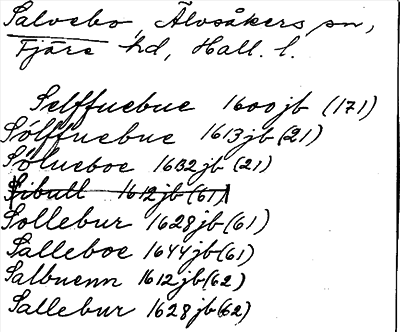 Salvebo, Älvsåkers sn,
Fjäre hd, Hall. l.
Selffuebue 1600 jb (171)
Sölffuebue 1613 jb (21)
Sölueboe 1632 jb (21)
Sibull 1612 jb (61)
Sollebur 1628 jb (61)
Salleboe 1644 jb (61)
Salbuenn 1612 jb (62)
Sallebur 1628 jb (62)